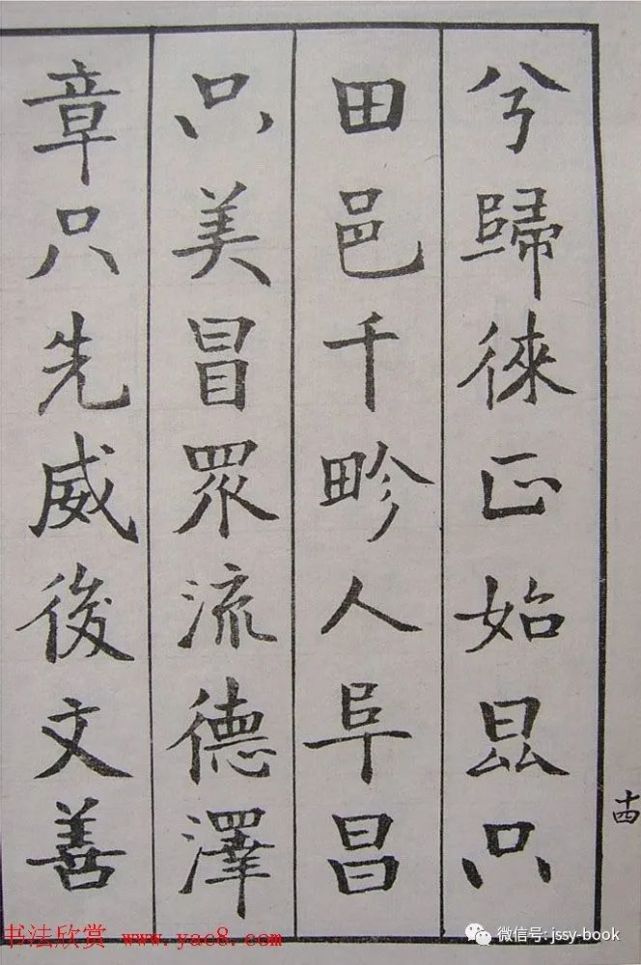 兮歸徠正始昆只
田邑千畛人阜昌
只美冒眾流德澤
章只先威後文善
十四
书法欣赏 www.yac8.com
微信号: jssy-book